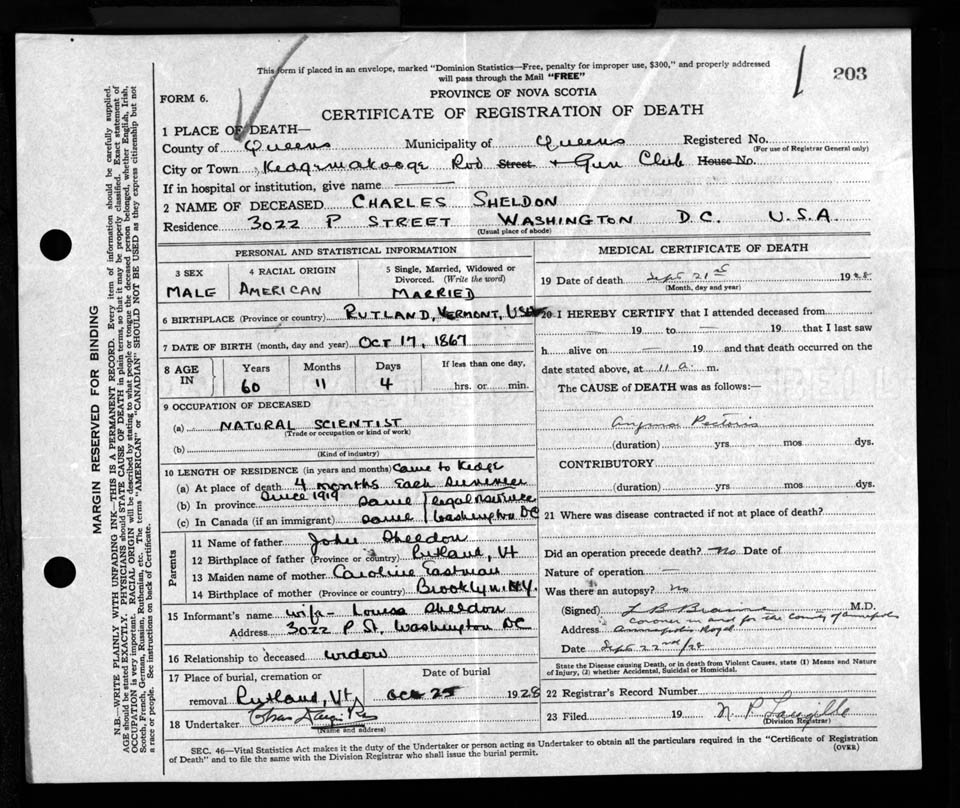 This form if placed in an envelope, marked "Dominion Statistics—Free, penalty for improper use, $300," and properly addressed
will pass through the Mail "FREE"
203
PROVINCE OF NOVA SCOTIA
FORM 6.
CERTIFICATE OF REGISTRATION OF DEATH
1 PLACE OF DEATH—
County of Queens Municipality of Queens Registered No.
(For use of Registrar General only)
City or Town Kedgemakooge Rod Street + Gun Club House No.
If in hospital or institution, give name
2 NAME OF DECEASED CHARLES SHELDON
Residence 3022 P STREET WASHINGTON D.C. U.S.A.
(Usual place of abode)
PERSONAL AND STATISTICAL INFORMATION
3 SEX 4 RACIAL ORIGIN 5 Single, Married, Widowed or
Divorced. (Write the word)
MALE AMERICAN MARRIED
6 BIRTHPLACE (Province or country) RUTLAND, VERMONT, USA
7 DATE OF BIRTH (month, day and year) OCT 17, 1867
8 AGE IN Years Months Days If less than one day,
60 11 4 hrs. or min.
9 OCCUPATION OF DECEASED
(a) NATURAL SCIENTIST
(Trade or occupation or kind of work)
(b)
(Kind of industry)
10 LENGTH OF RESIDENCE (in years and months) Came to Kedge
(a) At place of death 4 months Each Summer
(b) In province Since 1919 Same legal residence
(c) In Canada (if an immigrant) Same Washington DC
Parents
11 Name of father John Sheldon
12 Birthplace of father (Province or country) Rutland, Vt
13 Maiden name of mother Caroline Eastman
14 Birthplace of mother (Province or country) Brooklyn N.Y.
15 Informant's name wife- Louisa Sheldon
Address 3022 P St. Washington DC
16 Relationship to deceased widow
17 Place of burial, cremation or Date of burial
removal Rutland, Vt. Oct 25 1928
18 Undertaker
(Name and address)
MEDICAL CERTIFICATE OF DEATH
19 Date of death Sept 21st 1928
(Month, day and year)
20 I HEREBY CERTIFY that I attended deceased from
— 19 to — 19 that I last saw
h alive on — 19 and that death occurred on the
date stated above, at 11 a. m.
The CAUSE of DEATH was as follows:—
Angina Pectoris
(duration) yrs mos dys.
CONTRIBUTORY
(duration) yrs. mos. dys.
21 Where was disease contracted if not at place of death?
Did an operation precede death? no Date of
Nature of operation —
Was there an autopsy? No
(Signed) L B Braine M.D.
coroner in and for the County of Annapolis
Address Annapolis Royal
Date Sept 22nd/28
State the Disease causing Death, or in death from Violent Causes, state (1) Means and Nature
of Injury, (2) whether Accidental, Suicidal or Homicidal.
22 Registrar's Record Number
23 Filed 19 N. P.
(Division Registrar)
SEC. 46—Vital Statistics Act makes it the duty of the Undertaker or person acting as Undertaker to obtain all the particulars required in the "Certificate of Registration
of Death" and to file the same with the Division Registrar who shall issue the burial permit.
(OVER)
MARGIN RESERVED FOR BINDING
N.B.—WRITE PLAINLY WITH UNFADING INK—THIS IS A PERMANENT RECORD. Every item of information should be carefully supplied.
AGE should be stated EXACTLY. PHYSICIANS should STATE CAUSE OF DEATH in plain terms, so that it may be properly classified. Exact statement of
OCCUPATION is very important. RACIAL ORIGIN will be described by stating to what people or tongue the deceased person belonged, whether English, Irish,
Scotch, French, German, Russian, Ruthenian, etc. The terms "AMERICAN" or "CANADIAN" SHOULD NOT BE USED as they express citizenship but not
a race or people. See instructions on back of Certificate.